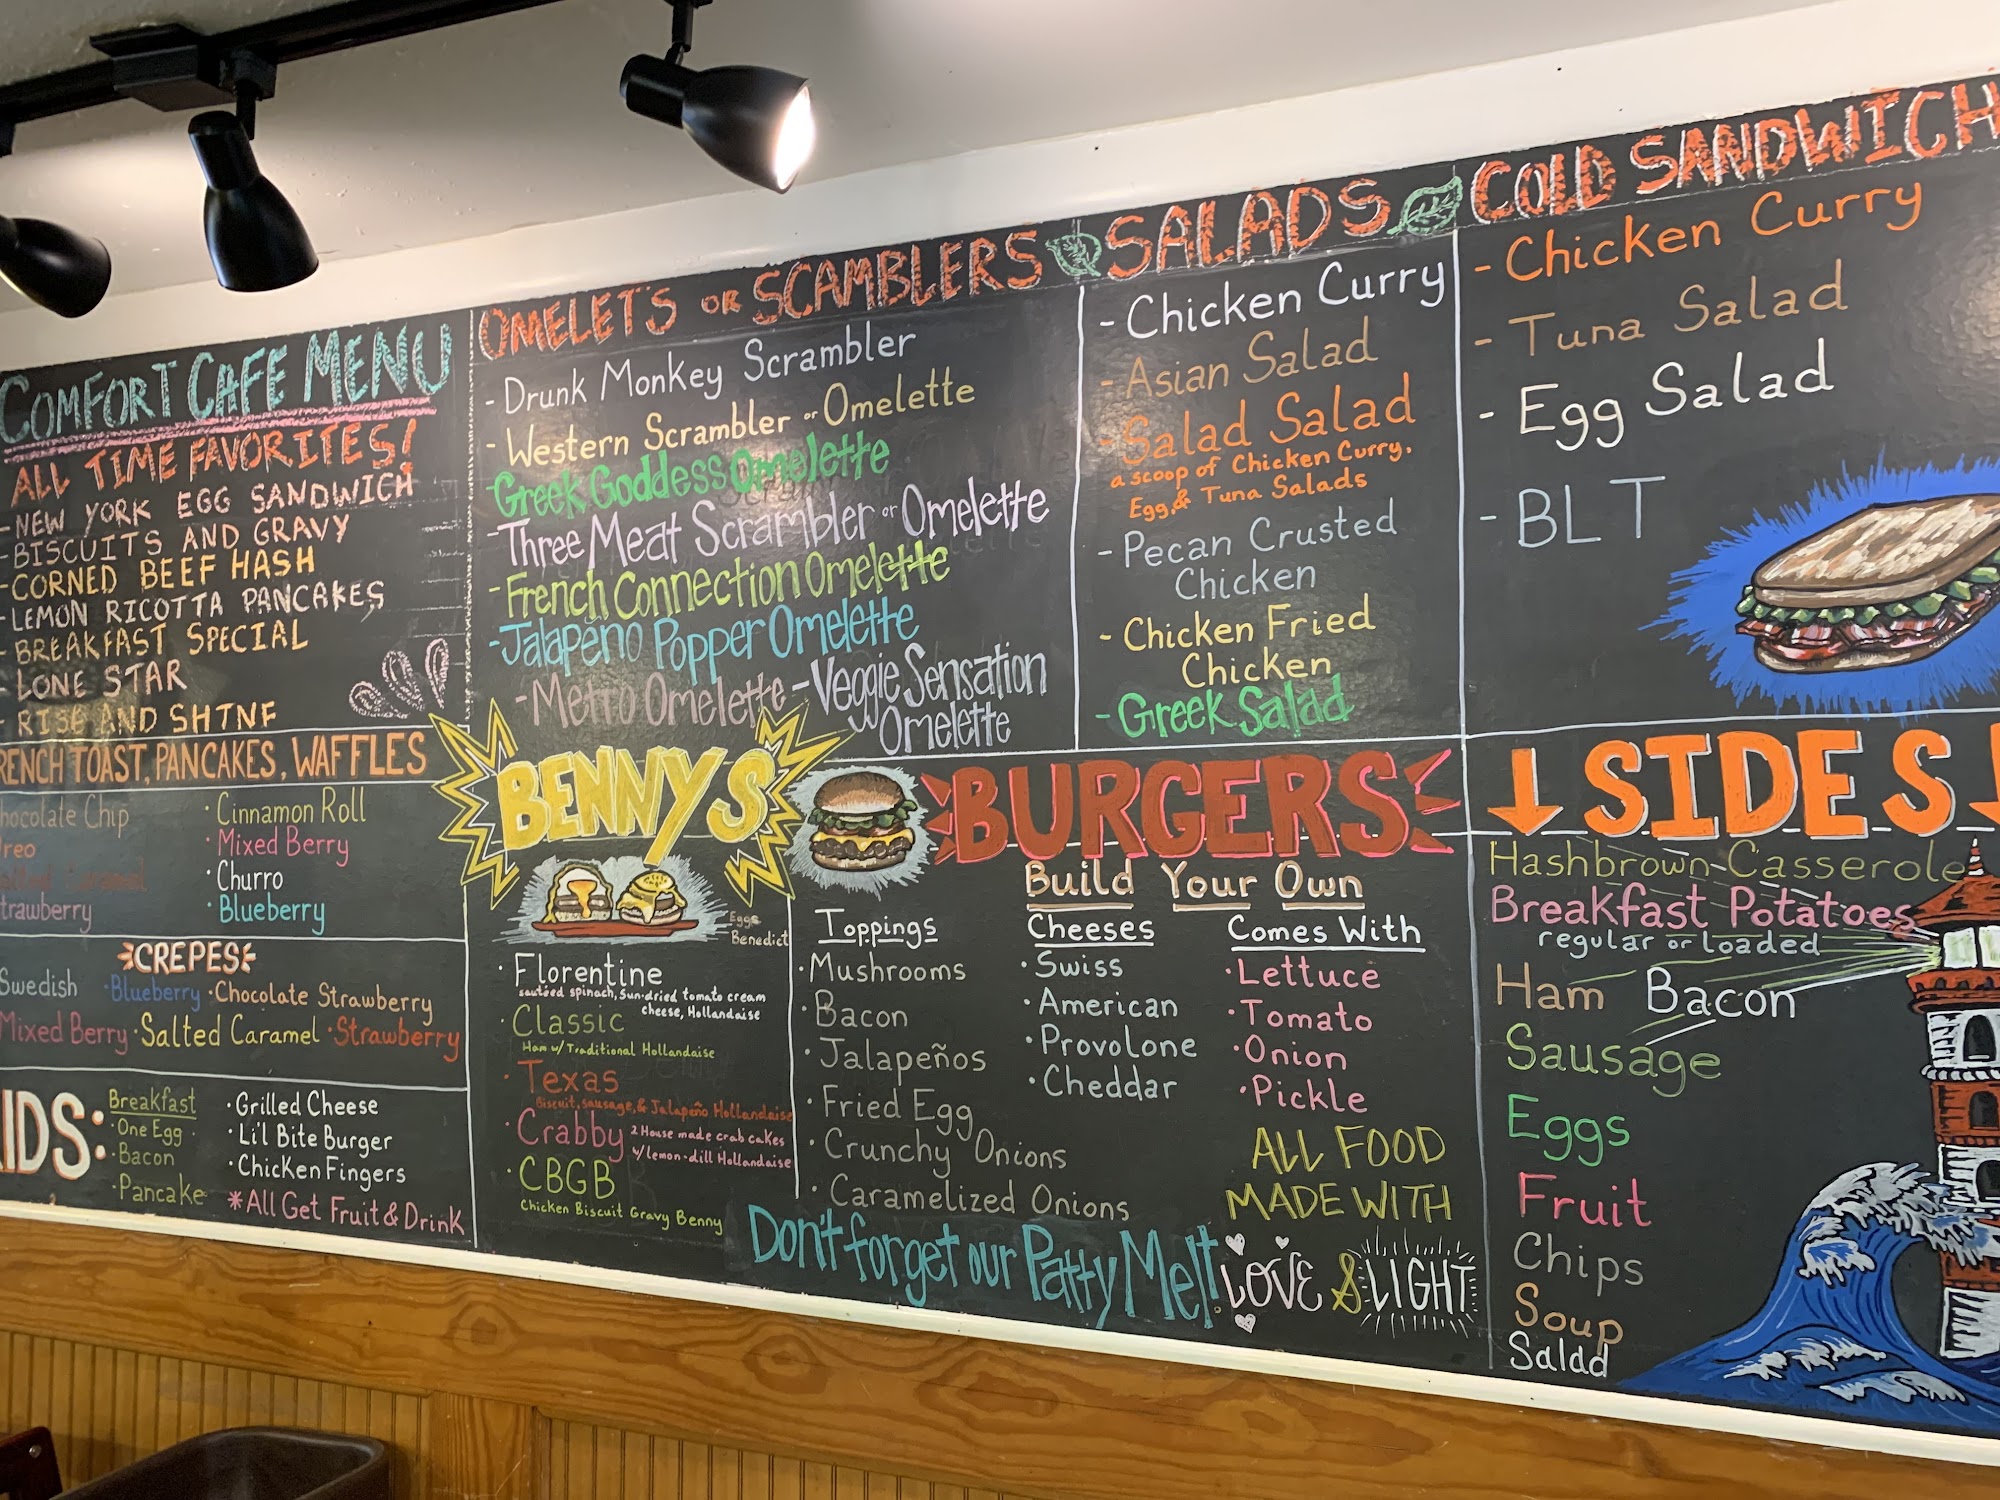 COMFORT CAFE MENU
ALL TIME FAVORITES!
-NEW YORK EGG SANDWICH
-BISCUITS AND GRAVY
-CORNED BEEF HASH
-LEMON RICOTTA PANCAKES
-BREAKFAST SPECIAL
-LONE STAR
-RISE AND SHINE
RENCH TOAST, PANCAKES, WAFFLES
hocolate Chip
Oreo
Salted Caramel
trawberry
·Cinnamon Roll
·Mixed Berry
·Churro
·Blueberry
CREPES
Swedish ·Blueberry ·Chocolate Strawberry
Mixed Berry ·Salted Caramel ·Strawberry
IDS:
Breakfast
·One Egg
·Bacon
·Pancake
·Grilled Cheese
·Li'l Bite Burger
·Chicken Fingers
*All Get Fruit & Drink
OMELETS OR SCAMBLERS
-Drunk Monkey Scrambler
-Western Scrambler or Omelette
-Greek Goddess Omelette
-Three Meat Scrambler or Omelette
-French Connection Omelette
-Jalapeño Popper Omelette
-Metro Omelette -Veggie Sensation
Omelette
BENNYS
Eggs
Benedict
·Florentine
sautéed spinach, sun-dried tomato cream
cheese, Hollandaise
·Classic
Ham w/ Traditional Hollandaise
·Texas
Biscuit, sausage, & Jalapeño Hollandaise
·Crabby 2 House made crab cakes
w/ lemon-dill Hollandaise
·CBGB
Chicken Biscuit Gravy Benny
SALADS
-Chicken Curry
-Asian Salad
-Salad Salad
a scoop of Chicken Curry,
Egg & Tuna Salads
-Pecan Crusted
Chicken
-Chicken Fried
Chicken
-Greek Salad
BURGERS
Build Your Own
Toppings
·Mushrooms
·Bacon
·Jalapeños
·Fried Egg
·Crunchy Onions
·Caramelized Onions
Cheeses
·Swiss
·American
·Provolone
·Cheddar
Comes With
·Lettuce
·Tomato
·Onion
·Pickle
Don't forget our Patty Melt
ALL FOOD
MADE WITH
LOVE & LIGHT
COLD SANDWICH
-Chicken Curry
-Tuna Salad
-Egg Salad
-BLT
SIDES
Hashbrown Casserole
Breakfast Potatoes
regular or loaded
Ham Bacon
Sausage
Eggs
Fruit
Chips
Soup
Salad